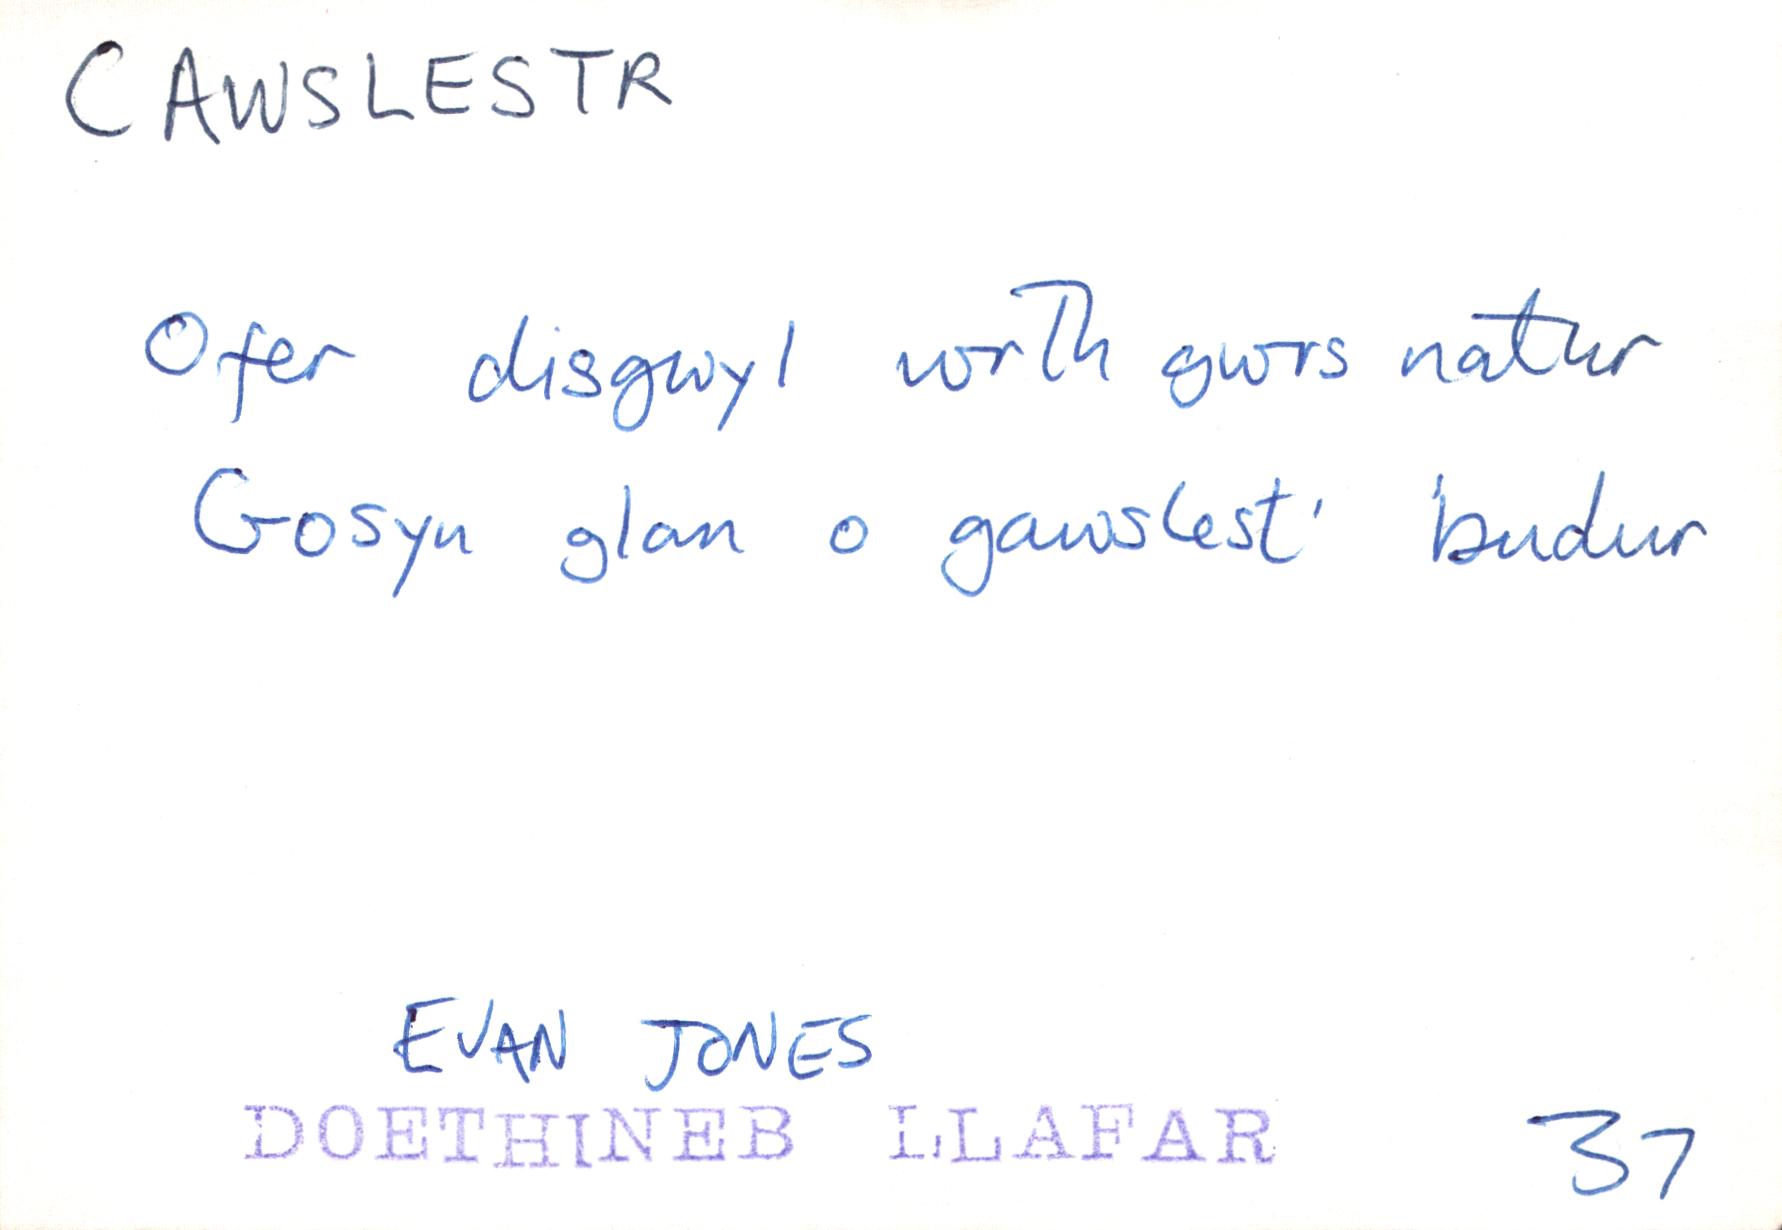 CAWSLESTR
Ofer disgwyl wrth gwrs natur
Gosyn glan o gawslest' budur
EVAN JONES
DOETHINEB LLAFAR 37